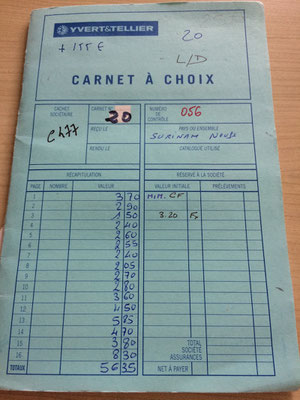 YVERT&TELLIER
+ ITT E
20
L/D
CARNET À CHOIX
CACHET SOCIÉTAIRE
CARNET N°
20
NUMÉRO DE CONTRÔLE
056
C477
REÇU LE
PAYS OU ENSEMBLE
SURINAM NEUFS
RENDU LE
CATALOGUE UTILISÉ
RÉCAPITULATION
RÉSERVÉ À LA SOCIÉTÉ
PAGE NOMBRE VALEUR VALEUR INITIALE PRÉLÈVEMENTS
1 3 70 MIM. CF
2 2 90
3 1 50 3.20 Fx
4 2 40
5 2 60
6 2 55
7 2 40
8 2 05
9 2 70
10 2 80
11 3 60
12 4 50
13 5 85
14 4 70 TOTAL
15 3 80 SOCIÉTÉ
16 8 30 ASSURANCES
TOTAUX 56 35 NET À PAYER